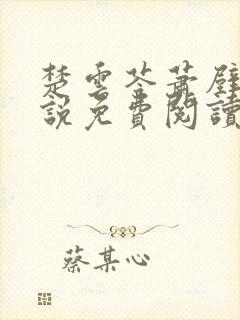 楚雲苓蕭壁
説免費閱讀
蔡某心